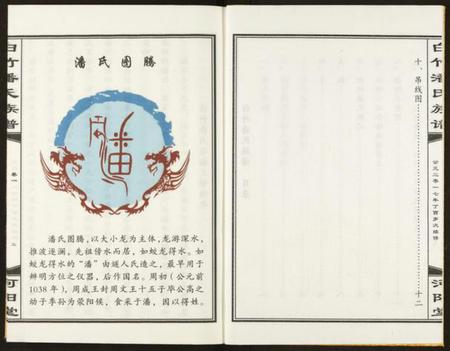 十、吊线图………………………………十二
白竹潘氏族谱
公元二零一七年丁酉岁次续修
河阳堂
白竹潘氏族谱
卷一
河阳堂
潘氏图腾
潘
潘氏图腾，以大小龙为主体，龙游深水，
推波逐澜，先祖傍水而居，如蛟龙得水。如
蛟龙得水的“潘”由燧人氏造之，最早用于
辨明方位之仪器，后作国名。周初（公元前
1038年），周成王封周文王十五子毕公高之
幼子季孙为荥阳侯，食采于潘，因以得姓。